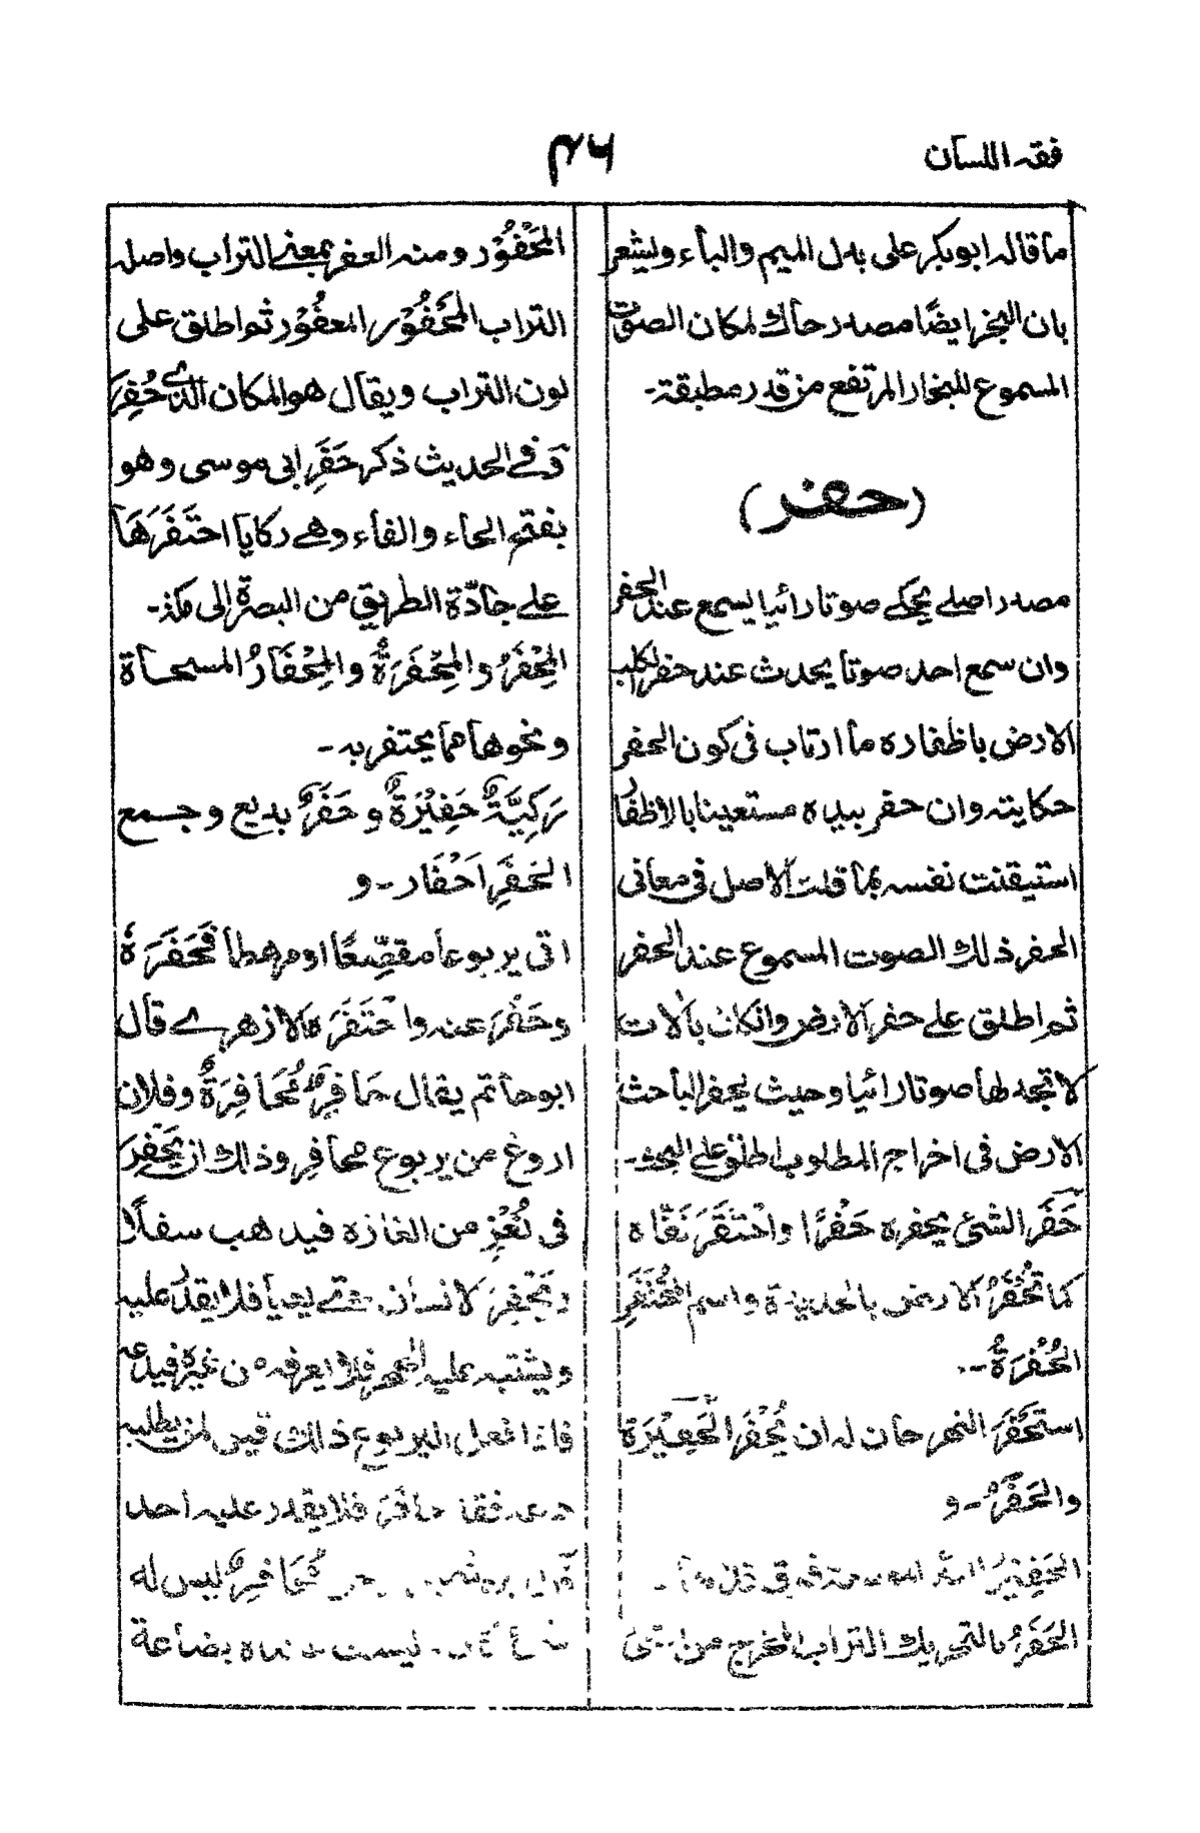 فقہ اللسان
۴۶
ما قالہ ابوبکر علی بدل المیم والباء ویشعر
بان البخر ایضًا مصدر حاك لمكان الصوت
المسموع للبخار المرتفع من قدر مطبقۃ۔
(حفر)
مصدر اصلے یحکے صوتا رائیا یسمع عند الحفر
وان سمع احد صوتا یحدث عند حفر الکلب
الارض باظفارہ ما ارتاب فی کون الحفر
حکایتہ وان حفر بیدہ مستعینا بالاظفار
استیقنت نفسہ بما قلت الاصل فی معانی
الحفر ذلك الصوت المسموع عند الحفر
ثم اطلق علے حفر الارض وانکان بآلات
لا تجد لها صوتا رائیا وحیث یحفر الباحث
الارض فی اخراج المطلوب اطلق علی البحث۔
حَفَرَ الشئ یحفرہ حَفْرًا واحْتَفَرَ نَقَّاہ
کما تُحْفَرُ الارض بالحدیدۃ واسم المُحْتَفَرِ
الحُفْرَةُ۔
استَحْفَرَ النهر حان له ان یُحْفَرَ الحَفِیْرَة
والحَفَرُ۔ و
الحَفِیْرُ
الحَفَرُ بالتحریك التراب المخرج من
المَحْفُوْر ومنہ العفر بمعنے التراب واصلہ
التراب المَحْفُوْر المعفُوْر ثم اطلق علی
لون التراب ویقال هو المکان الذے حُفِرَ
وَفے الحدیث ذکر حَفَرِ ابی موسی وهو
بفتح الحاء والفاء وهے رکایا احتَفَرَهَا
علے جادّة الطریق من البصرة الی مکۃ۔
المِحْفَرُ والمِحْفَرَةُ والمِحْفَارُ المسحاة
ونحوها مما یحتفر بہ۔
رَکِیَّۃٌ حَفِیْرَةٌ وحَفَرٌ بدیع وجمع
الحَفَرِ اَحْفَار۔ و
اتی یربوعا مقصِّعًا او مرهطا فَحَفَرَہٗ
وحَفَرَ عنہ واحْتَفَرَہ الازهرے قال
ابوحاتم یقال حَافِرٌ مُحَافِرَةٌ وفلان
اروغ من یربوع محافِر وذلك ان یَحْفِرَ
فی لُغْزٍ من الغازہ فیذهب سفلًا
ویَحْفِرَ الانسان حتے یعیا فلا یقدر علیہ
ویشتبہ علیہ الجحر فلا یعرفہ من غیرہ فیدعہ
فاذا فعل الیربوع ذلك قیل لمن یطلبہ
دعہ فقد حافَرَ فلا یقدر علیہ احد
مُحَافِرٌ لیس له
لیست بضاعة